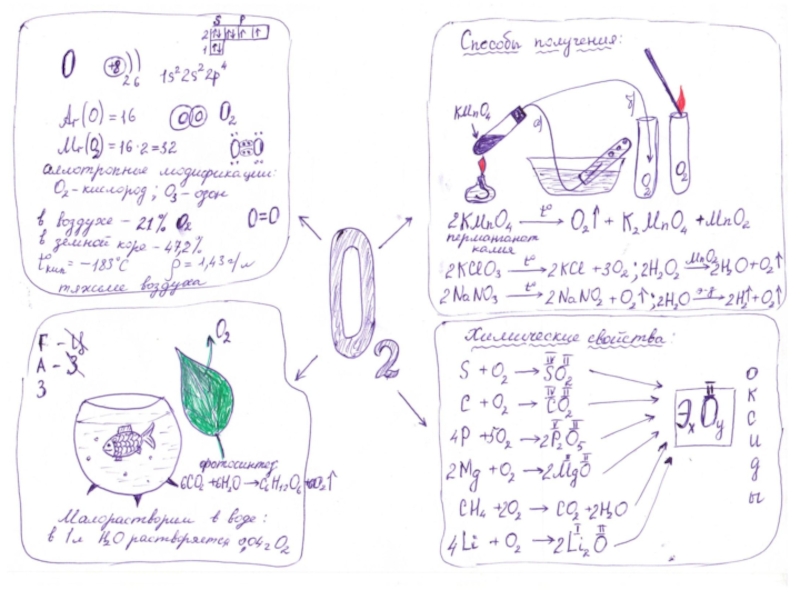 S P
2 ↑↓ ↑↓ ↑ ↑
1 ↑↓
O +8 ) ) 2 6 1s²2s²2p⁴
Ar(O) = 16 O₂
Mr(O₂) = 16·2 = 32
аллотропные модификации:
O₂ - кислород; O₃ - озон
в воздухе - 21% O₂ O=O
в земной коре - 47,2%
t°кип = -183°C ρ = 1,43 г/л
тяжелее воздуха
Способы получения:
KMnO₄
а) б)
O₂ O₂
2KMnO₄ t°→ O₂↑ + K₂MnO₄ + MnO₂
перманганат
калия
2KClO₃ t°→ 2KCl + 3O₂; 2H₂O₂ MnO₂→ 2H₂O + O₂↑
2NaNO₃ t°→ 2NaNO₂ + O₂↑; 2H₂O → 2H₂↑ + O₂↑
O₂
Г -
А - З
З
O₂
фотосинтез
6CO₂ + 6H₂O → C₆H₁₂O₆ + 6O₂↑
Малорастворим в воде:
в 1л H₂O растворяется 0,04г O₂
Химические свойства:
S + O₂ → SO₂ IV II
C + O₂ → CO₂ IV II
4P + 5O₂ → 2P₂O₅ V II
2Mg + O₂ → 2MgO II II
CH₄ + 2O₂ → CO₂ + 2H₂O
4Li + O₂ → 2Li₂O I II
ЭₓOᵧ II
оксиды